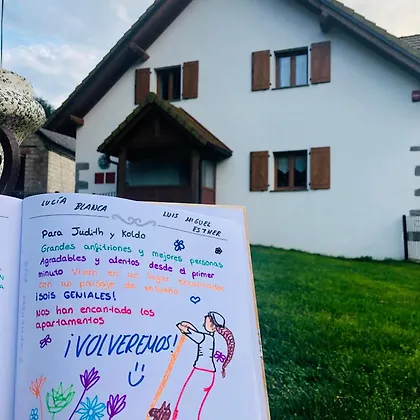 LUCÍA BLANCA LUIS MIGUEL
ESTHER
Para Judith y Koldo
Grandes anfitriones y mejores personas
Agradables y atentos desde el primer
minuto Viven en un lugar encantador
con un paisaje de ensueño
¡SOIS GENIALES!
Nos han encantado los
apartamentos
¡VOLVEREMOS!